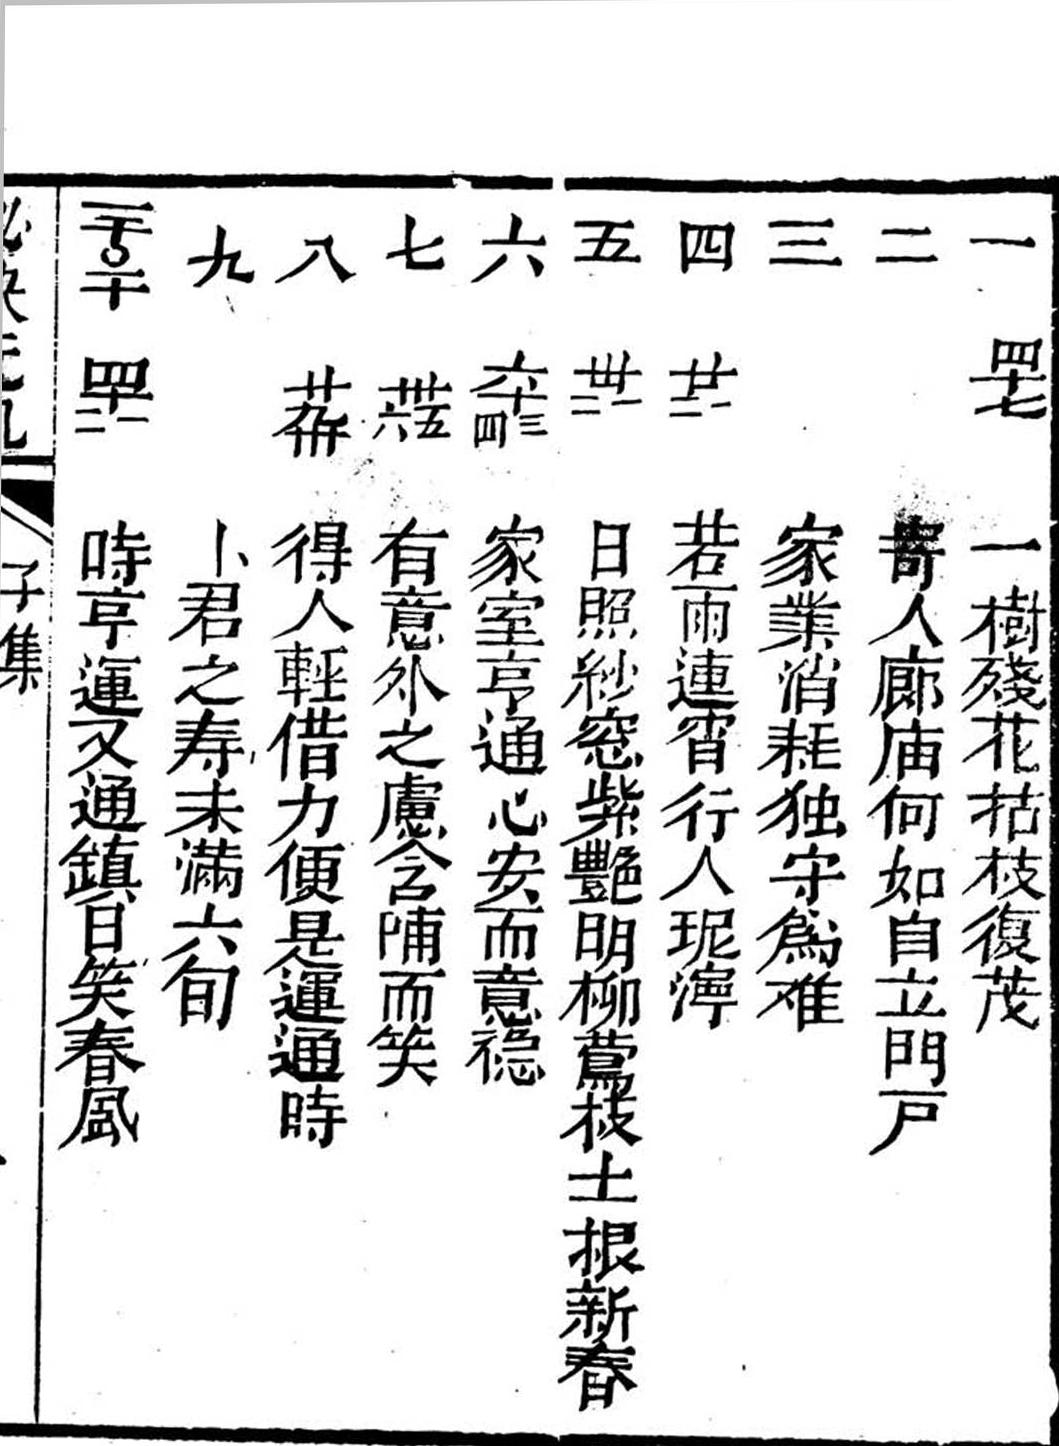 一 四十七 一樹殘花枯枝復茂
二 寄人廊庙何如自立門戸
三 家業消耗独守為难
四 廿一 二 若雨連宵行人玭濘
五 卅一 二 日照紗窓紫艷明柳鶯枝土根新春
六 六十三 四 家室亨通心安而意穏
七 卅五 六 有意外之慮含哺而笑
八 得人輕借力便是運通時
九 卜君之寿未滿六旬
十 四十一 二 時亨運又通鎮日笑春風
子集